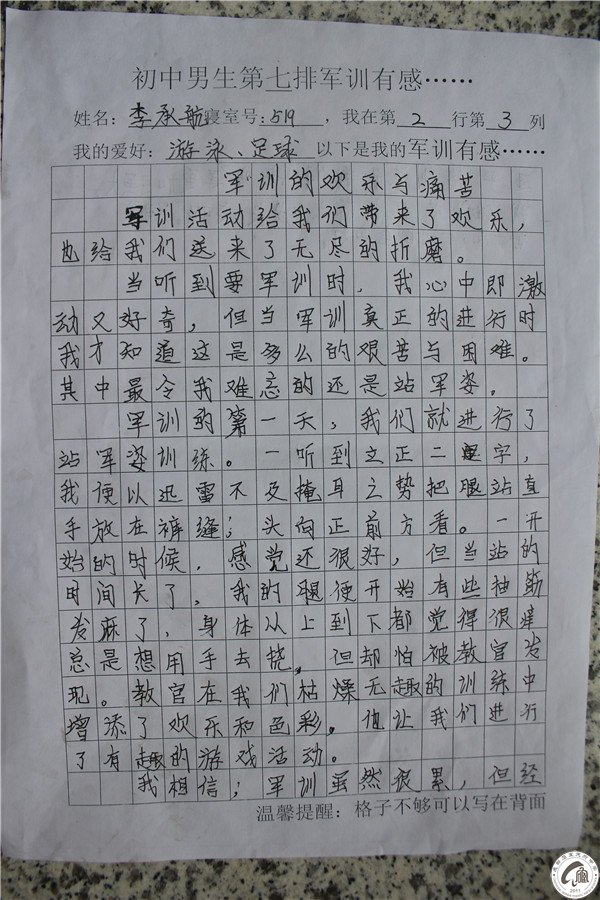 初中男生第七排军训有感……
姓名：李承航寝室号：519，我在第2行第3列
我的爱好：游泳、足球 以下是我的军训有感……
军训的欢乐与痛苦
军训活动给我们带来了欢乐，
也给我们送来了无尽的折磨。
当听到要军训时，我心中即激
动又好奇，但当军训真正的进行时
我才知道这是多么的艰苦与困难。
其中最令我难忘的还是站军姿。
军训的第一天，我们就进行了
站军姿训练。一听到立正二字，
我便以迅雷不及掩耳之势把腿站直
手放在裤缝；头向正前方看。一开
始的时候，感觉还很好，但当站的
时间长了，我的腿便开始有些抽筋
发麻了，身体从上到下都觉得很痒
总是想用手去挠，但却怕被教官发
现。教官在我们枯燥无趣的训练中
增添了欢乐和色彩。他让我们进行
了有趣的游戏活动。
我相信；军训虽然很累，但经
温馨提醒：格子不够可以写在背面
2011